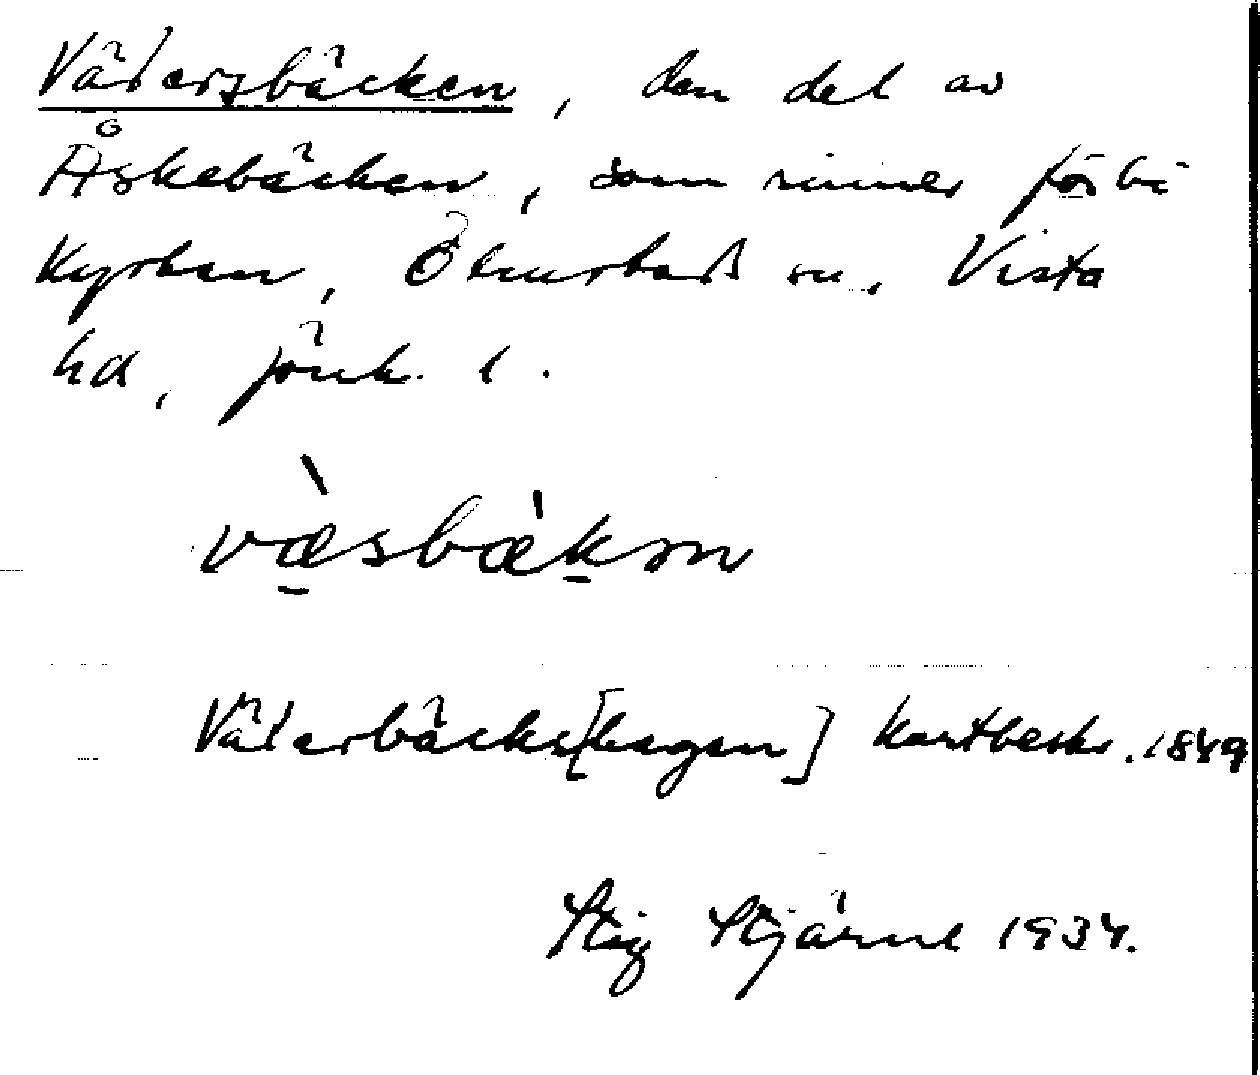 Vädersbäcken, den del av
Åskebäcken, som rinner förbi
Kyrkan, Ölmstads sn, Vista
hd, Jönk. l.
væ̀sbækən
Väderbäcks[hagen] Kartbeskr. 1849
Stig Stjärne 1934.